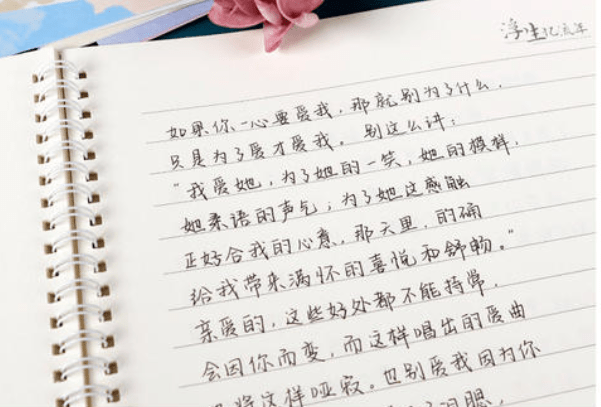 浮生忆流年
如果你一心要爱我，那就别为了什么，
只是为了爱才爱我。别这么讲：
“我爱她，为了她的一笑，她的模样，
她柔语的声气；为了她这感触
正好合我的心意，那天里，的确
给我带来满怀的喜悦和舒畅。”
亲爱的，这些好处都不能持常，
会因你而变，而这样唱出的爱曲
将这样哑寂。也别爱我因为你
泪腮，